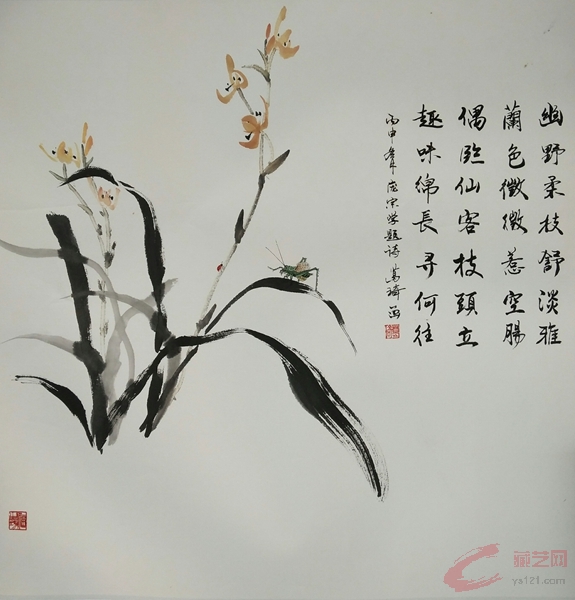 幽野柔枝舒淡雅
蘭色微微惹空腸
偶臨仙客枝頭立
趣味綿長尋何往
丙申年
題詩
藏艺网
ys121.com